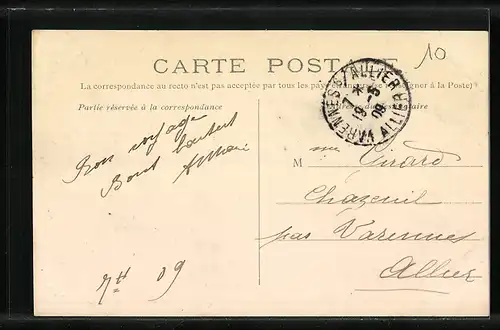 10
CARTE POSTALE
La correspondance au recto n'est pas acceptée par tous les pays étrangers (Se renseigner à la Poste)
Partie réservée à la correspondance
Adresse du destinataire
VARENNES S/ALLIER
ALLIER
19-5
09
Bon voyage
M me Girard
Chazeuil
par Varennes
Allier
09